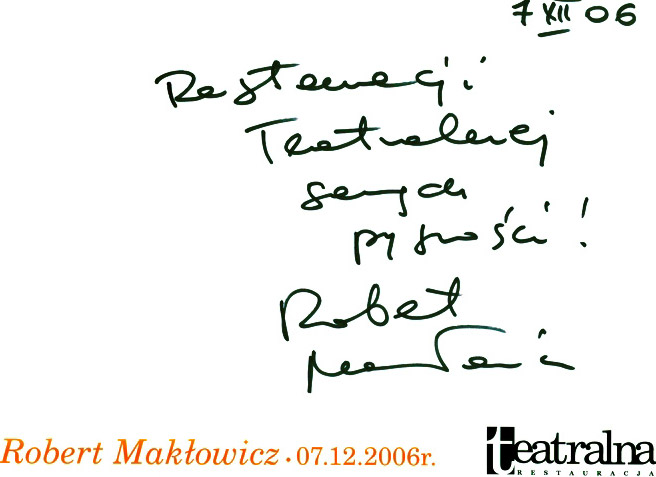 7 XII 06
Restauracji
Teatralnej
samych
pyszności!
Robert
Makłowicz
Robert Makłowicz • 07.12.2006r.
teatralna
RESTAURACJA